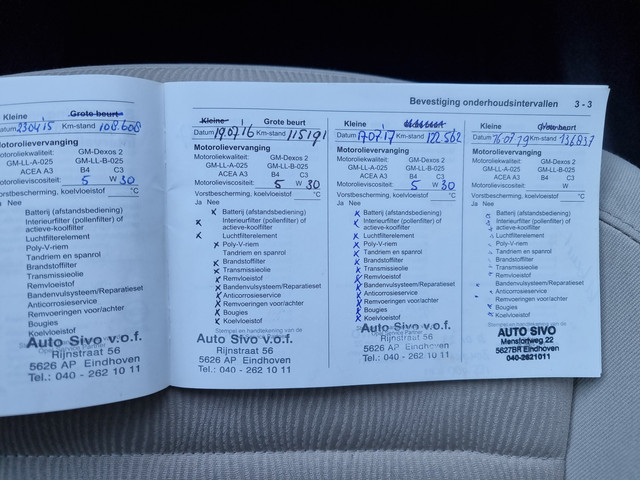 Bevestiging onderhoudsintervallen 3 - 3
Kleine Grote beurt
Datum 230415 Km-stand 108.608
Motorolievervanging
Motoroliekwaliteit: GM-Dexos 2
GM-LL-A-025 GM-LL-B-025
ACEA A3 B4 C3
Motorolieviscositeit: 5 W 30
Vorstbescherming, koelvloeistof °C
Ja Nee
Batterij (afstandsbediening)
Interieurfilter (pollenfilter) of
actieve-koolfilter
Luchtfilterelement
Poly-V-riem
Tandriem en spanrol
Brandstoffilter
Transmissieolie
Remvloeistof
Bandenvulsysteem/Reparatieset
Anticorrosieservice
Remvoeringen voor/achter
Bougies
Koelvloeistof
Auto Sivo v.o.f.
Rijnstraat 56
5626 AP Eindhoven
Tel.: 040 - 262 10 11
Kleine Grote beurt
Datum 19.07.16 Km-stand 115191
Motorolievervanging
Motoroliekwaliteit: GM-Dexos 2
GM-LL-A-025 GM-LL-B-025
ACEA A3 B4 C3
Motorolieviscositeit: 5 W 30
Vorstbescherming, koelvloeistof °C
Ja Nee
x Batterij (afstandsbediening)
x Interieurfilter (pollenfilter) of
actieve-koolfilter
x Luchtfilterelement
x Poly-V-riem
Tandriem en spanrol
x Brandstoffilter
x Transmissieolie
x Remvloeistof
x Bandenvulsysteem/Reparatieset
x Anticorrosieservice
x Remvoeringen voor/achter
x Bougies
x Koelvloeistof
Stempel en handtekening van de
Auto Sivo v.o.f.
Rijnstraat 56
5626 AP Eindhoven
Tel.: 040 - 262 10 11
Kleine
Datum 170717 Km-stand 122.562
Motorolievervanging
Motoroliekwaliteit: GM-Dexos 2
GM-LL-A-025 GM-LL-B-025
ACEA A3 B4 C3
Motorolieviscositeit: 5 W 30
Vorstbescherming, koelvloeistof °C
Ja Nee
x Batterij (afstandsbediening)
x Interieurfilter (pollenfilter) of
actieve-koolfilter
x Luchtfilterelement
x Poly-V-riem
x Tandriem en spanrol
x Brandstoffilter
x Transmissieolie
x Remvloeistof
x Bandenvulsysteem/Reparatieset
x Anticorrosieservice
x Remvoeringen voor/achter
x Bougies
x Koelvloeistof
Auto Sivo v.o.f.
Rijnstraat 56
5626 AP Eindhoven
Tel.: 040 - 262 10 11
Kleine Grote beurt
Datum 16.07.19 Km-stand 136837
Motorolievervanging
Motoroliekwaliteit: GM-Dexos 2
GM-LL-A-025 GM-LL-B-025
ACEA A3 B4 C3
Motorolieviscositeit: W
Vorstbescherming, koelvloeistof °C
Ja Nee
Batterij (afstandsbediening)
Interieurfilter (pollenfilter) of
actieve-koolfilter
Luchtfilterelement
Poly-V-riem
Tandriem en spanrol
Brandstoffilter
Transmissieolie
Remvloeistof
Bandenvulsysteem/Reparatieset
Anticorrosieservice
Remvoeringen voor/achter
Bougies
Koelvloeistof
AUTO SIVO
5627BR Eindhoven
040-2621011